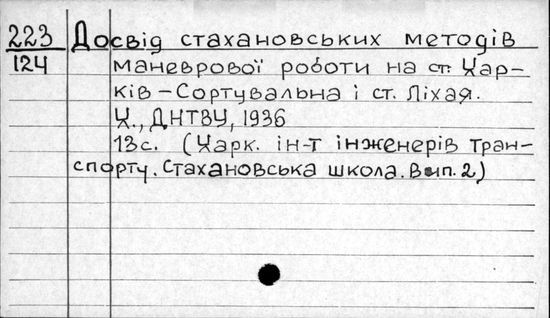 223 Досвід стахановських методів
124 маневрової роботи на ст. Хар-
ків-Сортувальна і ст. Ліхая.
Х., ДНТВУ, 1936
13с. (Харк. ін-т інженерів тран-
спорту. Стахановська школа. Вип. 2)